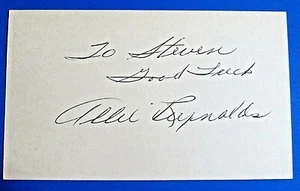 To Steven
Good Luck
Allie Reynolds